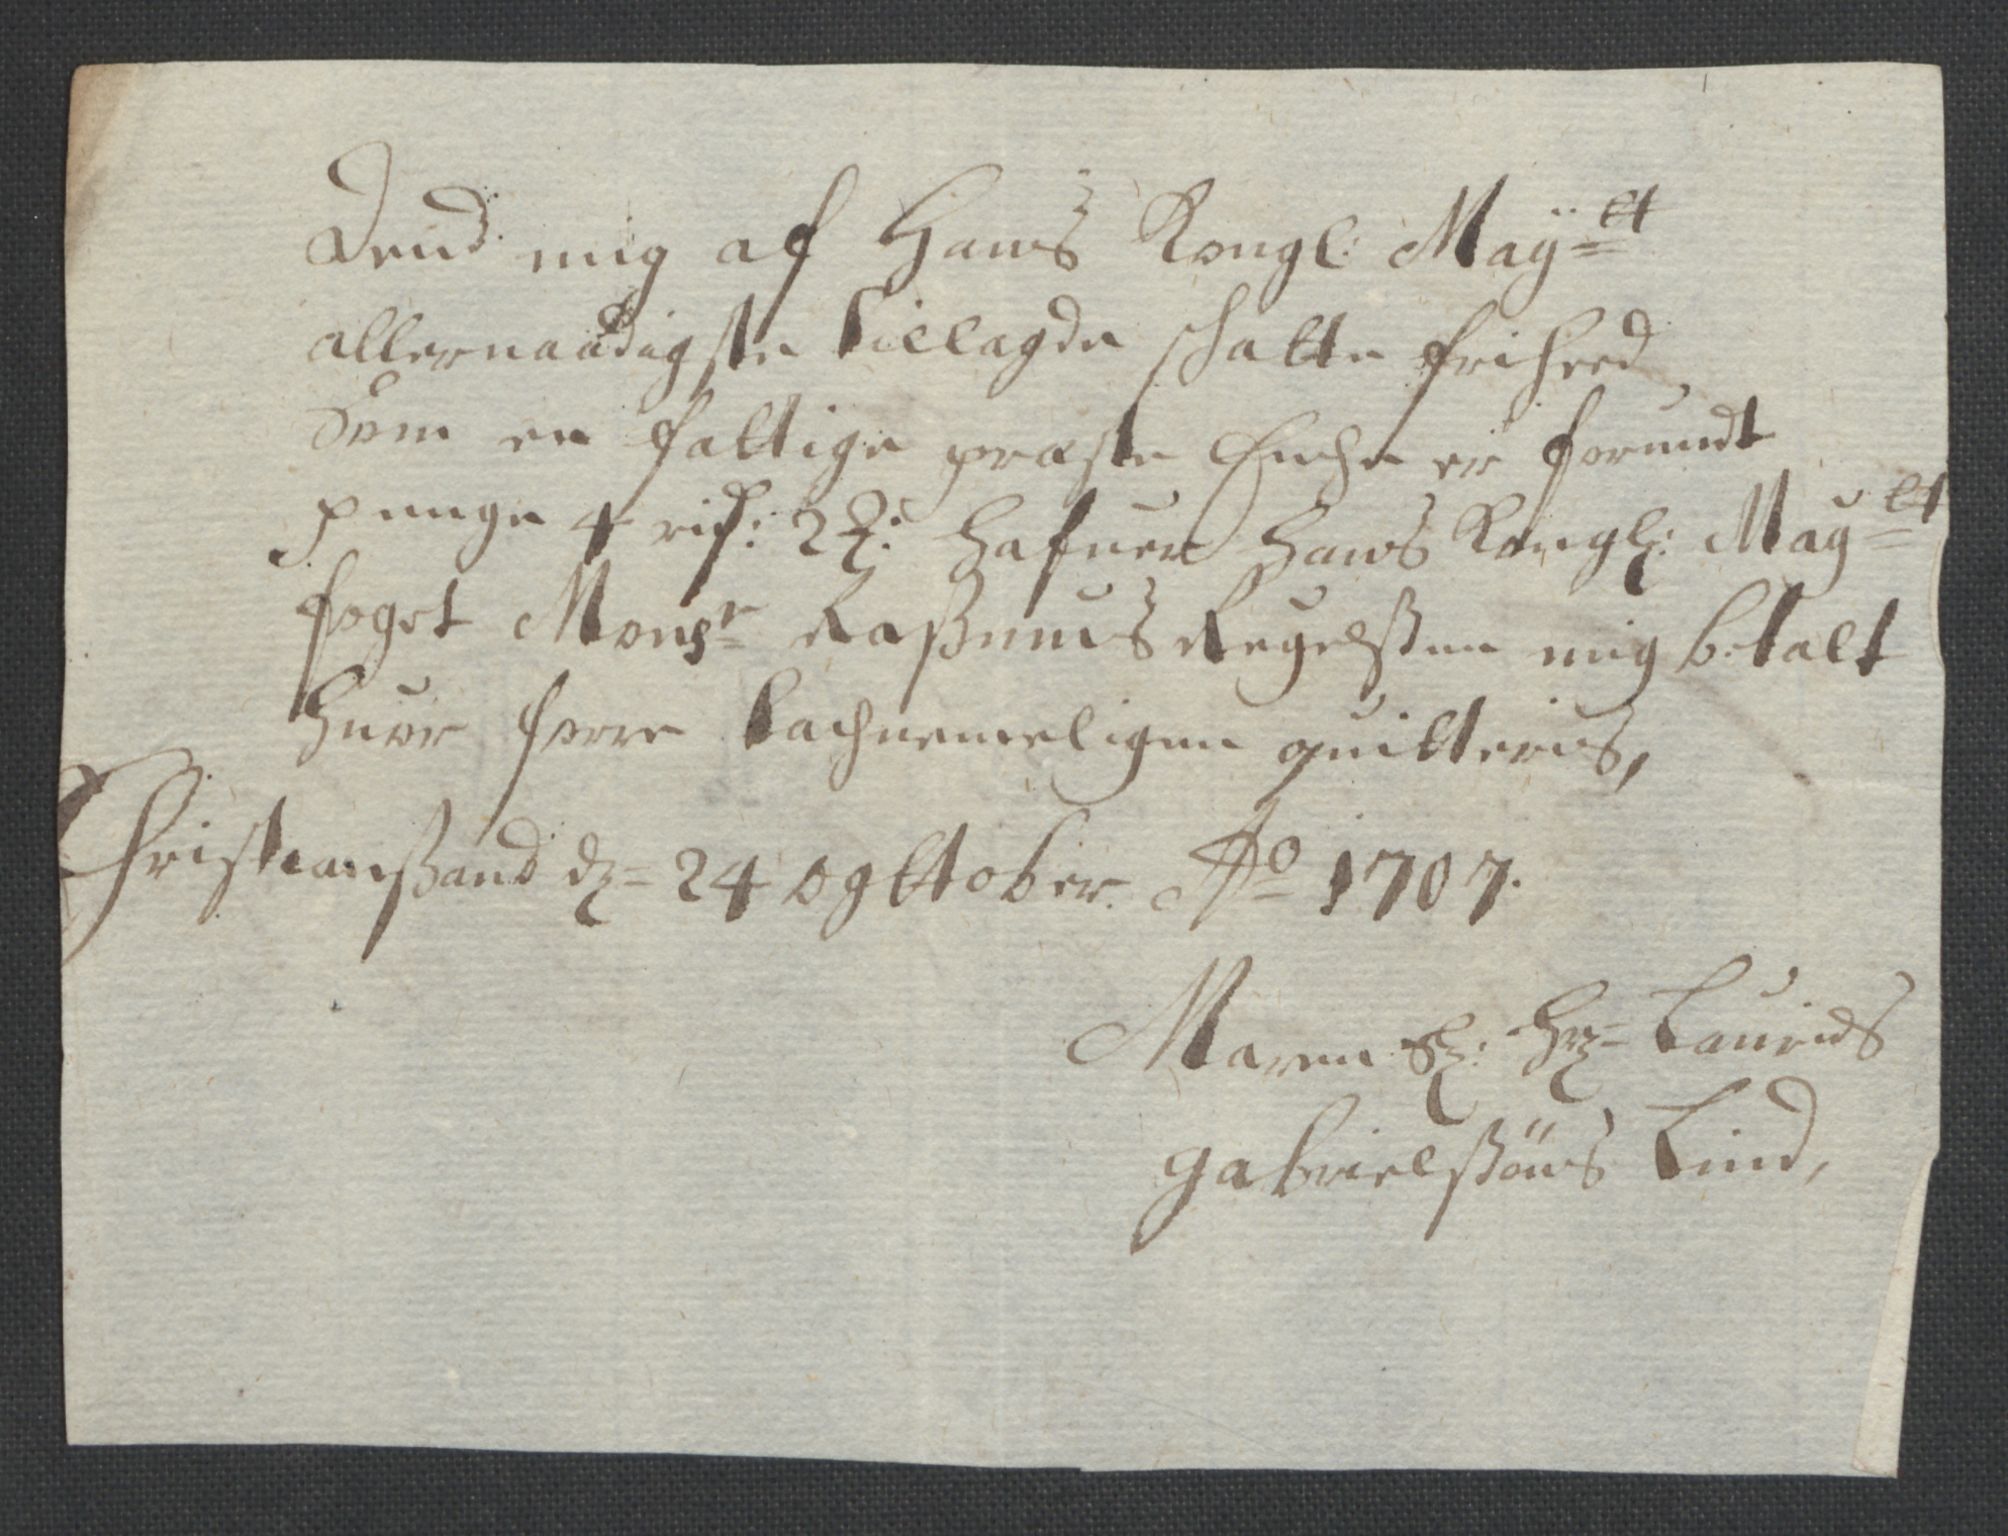 Dend mig af Hans Kongl: Maÿtt
allernaadigste tillagde schatte friheed
Som en fattige præste Enche er forundt
penge 4 rdr: 2 : hafuer Hans Kongl: Maÿtt
foget Monsr Rasmus Regelssen mig betalt
huor forre tachnemeligen quitteris,
Christianßand d: 24 ogttober Ao 1707.
Maren Sl: Hr: Laurids
gabrielßöns Lind,